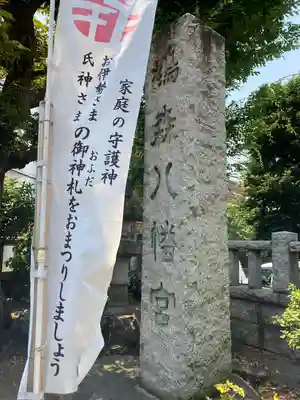 家庭の守護神
お伊勢さま
氏神さまの御神札をおまつりしましょう
おふだ
森八幡宮